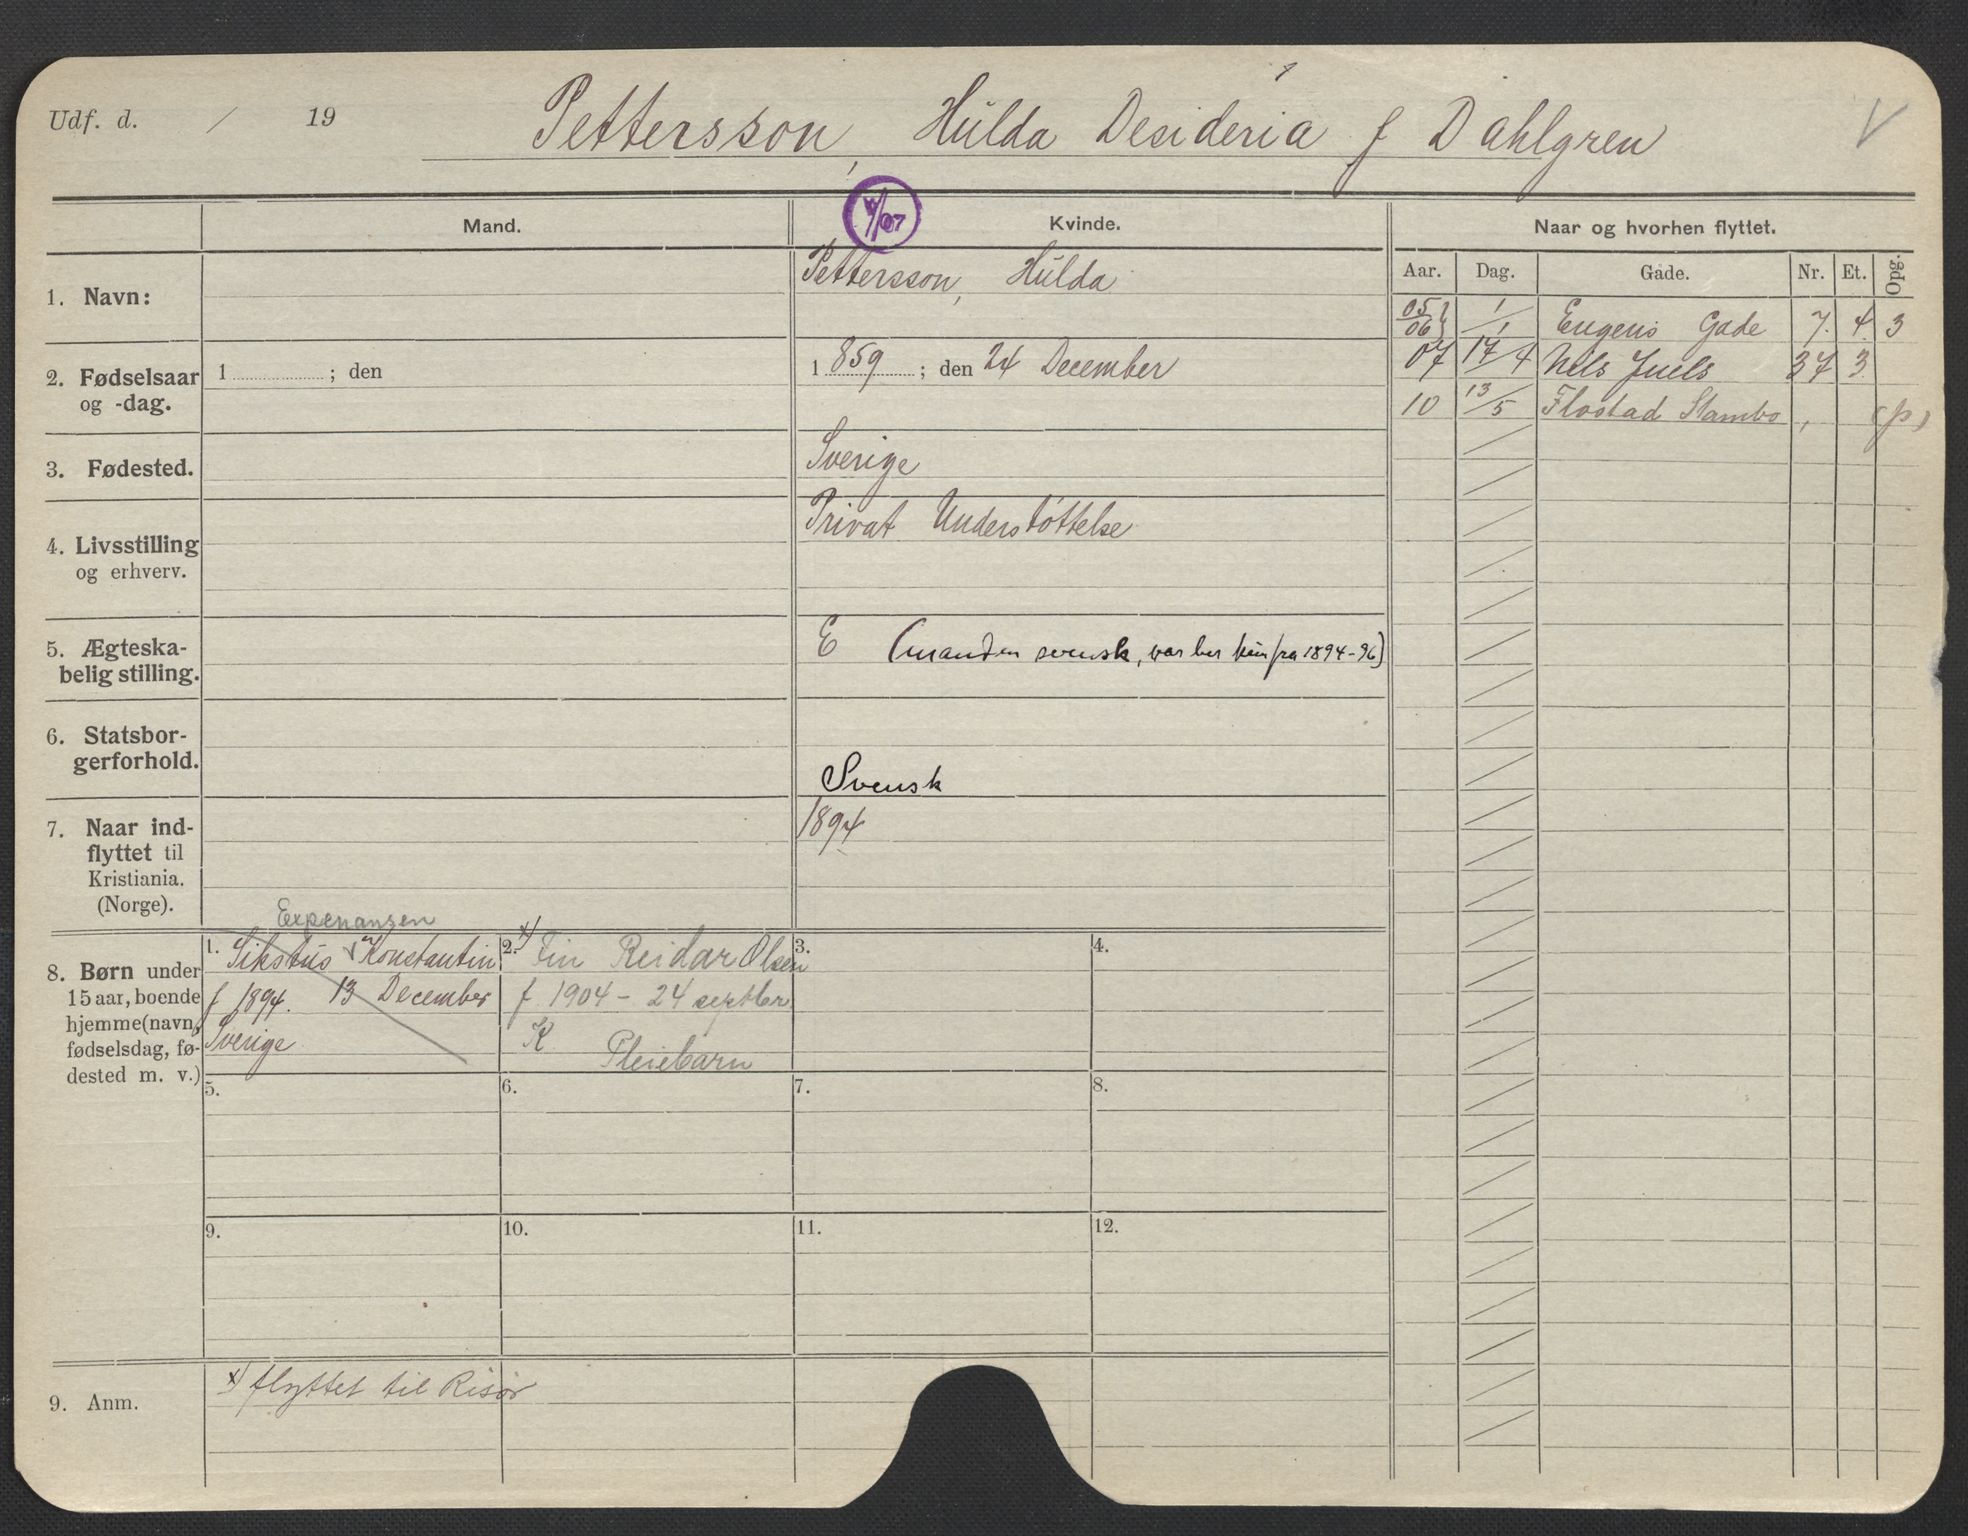 Udf. d. / 19
Pettersson, Hulda Desideria f Dahlgren
V
Mand.
4/07
Kvinde.
Naar og hvorhen flyttet.
Aar. Dag. Gade. Nr. Et. Opg.
05 / 06 1/1 Eugenis Gade 7. 4. 3
07 17/4 Nils Juels 37 3
10 13/5 Flostad Stambo, (p)
1. Navn:
Pettersson, Hulda
2. Fødselsaar og -dag.
1 ; den
1859 ; den 24 December
3. Fødested.
Sverige
4. Livsstilling og erhverv.
Privat Understøttelse
5. Ægteska-
belig stilling.
E (manden svensk, var her kun fra 1894-96)
6. Statsbor-
gerforhold.
Svensk
7. Naar ind-
flyttet til
Kristiania.
(Norge).
1894
8. Børn under
15 aar, boende
hjemme (navn,
fødselsdag, fø-
dested m. v.)
Expenansen
1. Sikstus Konstantin
f 1894. 13 December
Sverige
2. x) Fin Reidar Olsen
f. 1904 - 24 septber
K
Pleiebarn
3.
4.
5.
6.
7.
8.
9.
10.
11.
12.
9. Anm.
x) flyttet til Risør